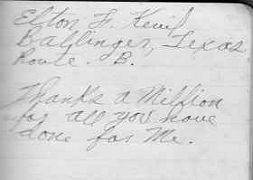 Elton F. Kevil
Ballinger, Texas
Route. B.
Thanks a Million
for all you have
done for Me.